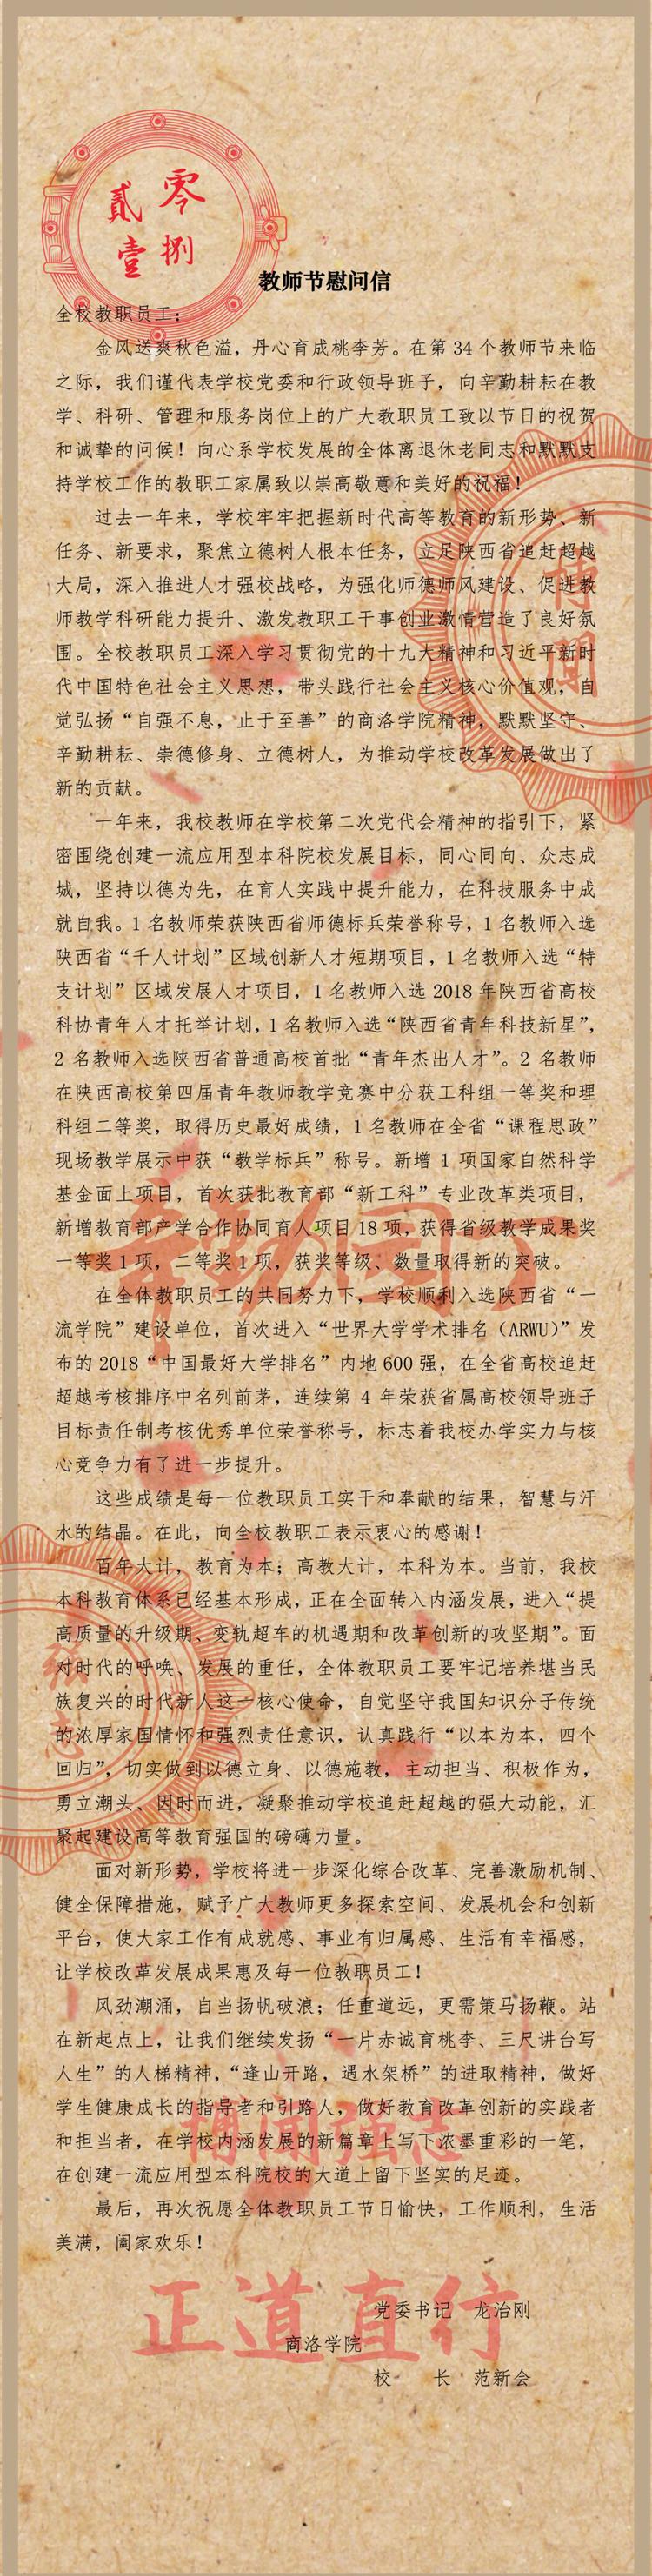 贰 零
壹 捌
教师节慰问信
全校教职员工：
金风送爽秋色溢，丹心育成桃李芳。在第 34 个教师节来临
之际，我们谨代表学校党委和行政领导班子，向辛勤耕耘在教
学、科研、管理和服务岗位上的广大教职员工致以节日的祝贺
和诚挚的问候！向心系学校发展的全体离退休老同志和默默支
持学校工作的教职工家属致以崇高敬意和美好的祝福！
过去一年来，学校牢牢把握新时代高等教育的新形势、新
任务、新要求，聚焦立德树人根本任务，立足陕西省追赶超越
大局，深入推进人才强校战略，为强化师德师风建设、促进教
师教学科研能力提升、激发教职工干事创业激情营造了良好氛
围。全校教职员工深入学习贯彻党的十九大精神和习近平新时
代中国特色社会主义思想，带头践行社会主义核心价值观，自
觉弘扬“自强不息，止于至善”的商洛学院精神，默默坚守、
辛勤耕耘、崇德修身、立德树人，为推动学校改革发展做出了
新的贡献。
博聞
一年来，我校教师在学校第二次党代会精神的指引下，紧
密围绕创建一流应用型本科院校发展目标，同心同向、众志成
城，坚持以德为先，在育人实践中提升能力，在科技服务中成
就自我。1 名教师荣获陕西省师德标兵荣誉称号，1 名教师入选
陕西省“千人计划”区域创新人才短期项目，1 名教师入选“特
支计划”区域发展人才项目，1 名教师入选 2018 年陕西省高校
科协青年人才托举计划，1 名教师入选“陕西省青年科技新星”，
2 名教师入选陕西省普通高校首批“青年杰出人才”。2 名教师
在陕西高校第四届青年教师教学竞赛中分获工科组一等奖和理
科组二等奖，取得历史最好成绩，1 名教师在全省“课程思政”
现场教学展示中获“教学标兵”称号。新增 1 项国家自然科学
基金面上项目，首次获批教育部“新工科”专业改革类项目，
新增教育部产学合作协同育人项目 18 项，获得省级教学成果奖
一等奖 1 项，二等奖 1 项，获奖等级、数量取得新的突破。
辛勤园丁
在全体教职员工的共同努力下，学校顺利入选陕西省“一
流学院”建设单位，首次进入“世界大学学术排名（ARWU）”发
布的 2018“中国最好大学排名”内地 600 强，在全省高校追赶
超越考核排序中名列前茅，连续第 4 年荣获省属高校领导班子
目标责任制考核优秀单位荣誉称号，标志着我校办学实力与核
心竞争力有了进一步提升。
这些成绩是每一位教职员工实干和奉献的结果，智慧与汗
水的结晶。在此，向全校教职工表示衷心的感谢！
百年大计，教育为本；高教大计，本科为本。当前，我校
本科教育体系已经基本形成，正在全面转入内涵发展，进入“提
高质量的升级期、变轨超车的机遇期和改革创新的攻坚期”。面
对时代的呼唤、发展的重任，全体教职员工要牢记培养堪当民
族复兴的时代新人这一核心使命，自觉坚守我国知识分子传统
的浓厚家国情怀和强烈责任意识，认真践行“以本为本，四个
回归”，切实做到以德立身、以德施教，主动担当、积极作为，
勇立潮头、因时而进，凝聚推动学校追赶超越的强大动能，汇
聚起建设高等教育强国的磅礴力量。
面对新形势，学校将进一步深化综合改革、完善激励机制、
健全保障措施，赋予广大教师更多探索空间、发展机会和创新
平台，使大家工作有成就感、事业有归属感、生活有幸福感，
让学校改革发展成果惠及每一位教职员工！
风劲潮涌，自当扬帆破浪；任重道远，更需策马扬鞭。站
在新起点上，让我们继续发扬“一片赤诚育桃李、三尺讲台写
人生”的人梯精神，“逢山开路，遇水架桥”的进取精神，做好
学生健康成长的指导者和引路人，做好教育改革创新的实践者
和担当者，在学校内涵发展的新篇章上写下浓墨重彩的一笔，
在创建一流应用型本科院校的大道上留下坚实的足迹。
最后，再次祝愿全体教职员工节日愉快，工作顺利，生活
美满，阖家欢乐！
正道直行
党委书记 龙治刚
商洛学院
校 长 范新会